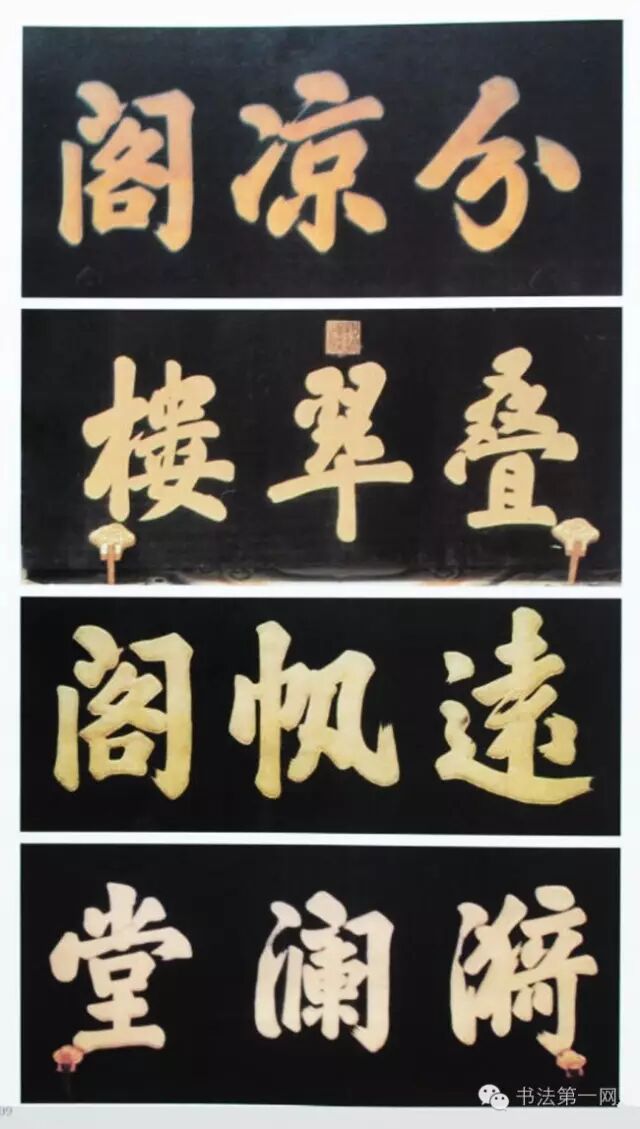 分凉阁
叠翠楼
遠帆阁
漪澜堂
09
书法第一网